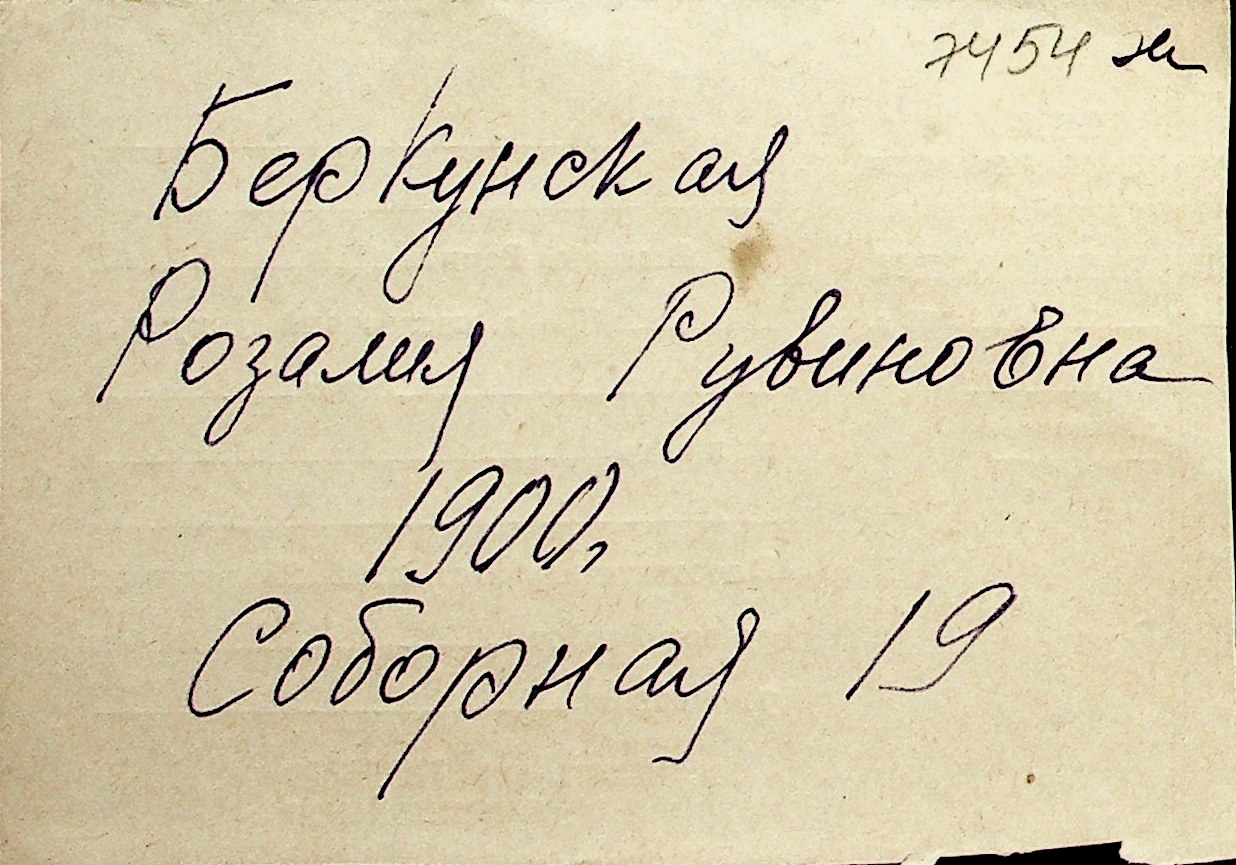 7454 ж
Беркунская
Розалия Рувиновна
1900,
Соборная 19